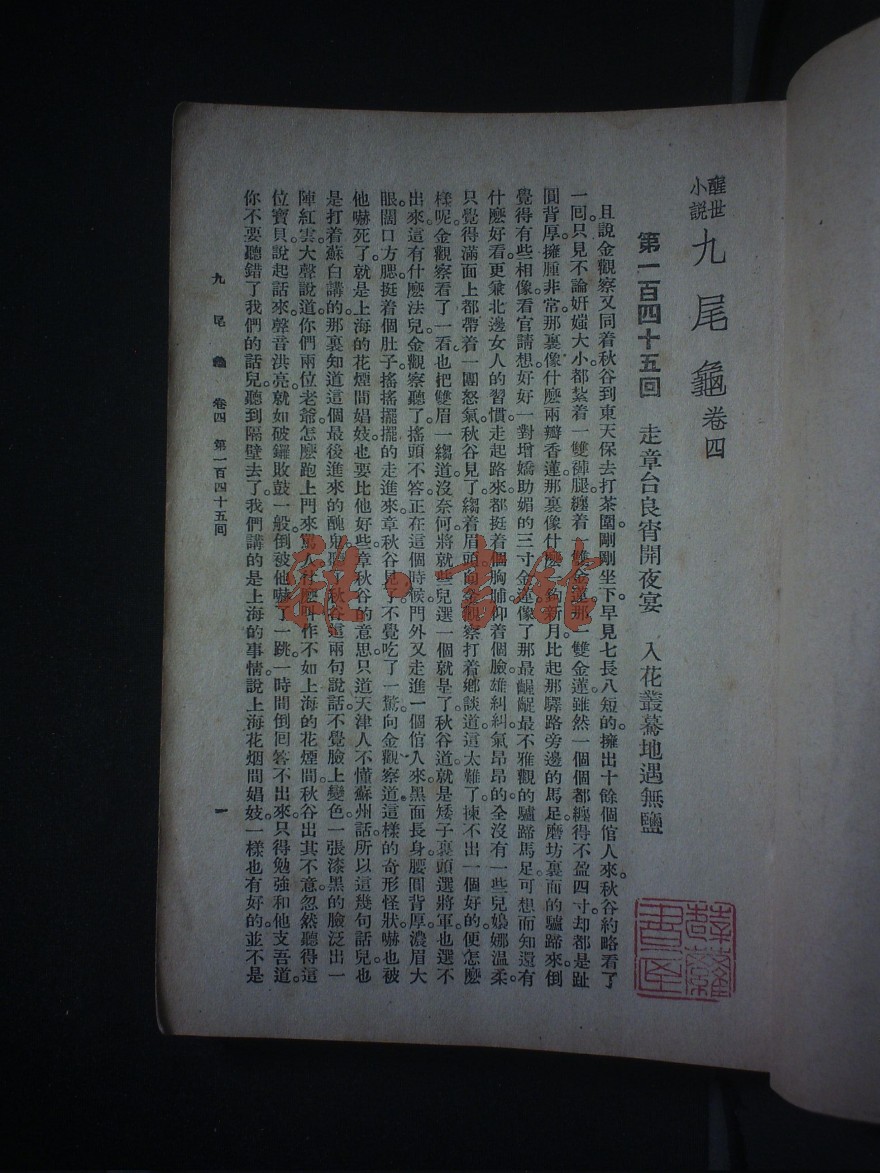 醒世小說 九尾龜 卷四
第一百四十五回 走章台良宵開夜宴 入花叢驀地遇無鹽
且說金觀察又同着秋谷到東天保去打茶圍。剛剛坐下。早見七長八短的。擁出十餘個倌人來。秋谷約略看了
一回。只見不論姸媸大小。都紮着一雙褲腿。纏着一雙金蓮。那一雙金蓮。雖然一個個都纏得不盈四寸。却都是趾
圓背厚。擁腫非常。那裏像什麽兩瓣香蓮。那裏像什麽一鉤新月。比起那驛路旁邊的馬足。磨坊裏面的驢蹄來。倒
覺得有些相像。看官請想。好好一對增嬌助媚的三寸金蓮。像了那最齷齪最不雅觀的驢蹄馬足。可想而知還有
什麽好看。更兼北邊女人的習慣。走起路來。都挺着個胸脯。仰着個臉。雄糾糾氣昂昂的。全沒有一些兒嬝娜溫柔。
只覺得滿面上都帶着一團怒氣。秋谷見了。縐着眉頭。向金觀察打着鄉談道。這太難了。揀不出一個好的。便怎麽
樣呢。金觀察看了一看。也把雙眉一縐道。沒奈何。將就些兒選一個就是了。秋谷道。就是矮子裏頭選將軍。也選不
出來。這有什麽法兒。金觀察聽了。搖頭不答。正在這個時候。門外又走進一個倌人來。黑面長身。腰圓背厚。濃眉大
眼。闊口方腮。挺着個肚子。搖搖擺擺的走進來。章秋谷見了。不覺吃了一驚。向金觀察道。這樣的奇形怪狀。嚇也被
他嚇死了。就是上海的花煙間娼妓。也要比他好些。章秋谷的意思。只道天津人不懂蘇州話。所以這幾句話兒。也
是打着蘇白講的。那裏知道這個最後進來的醜鬼。聽了秋谷這兩句說話。不覺臉上變色。一張漆黑的臉。泛出一
陣紅雲。大聲說道。你們兩位老爺。怎麽跑上門來駡人。什麽叫作不如上海的花煙間。秋谷出其不意。忽然聽得這
位寶貝說起話來。聲音洪亮。就如破鑼敗鼓一般。倒被他嚇了一跳。一時間倒回答不出來。只得勉強和他支吾道。
你不要聽錯了我們的話兒。聽到隔壁去了。我們講的是上海的事情。說上海花烟間娼妓。一樣也有好的。並不是
九尾龜 卷四 第一百四十五回 一
雜·書館